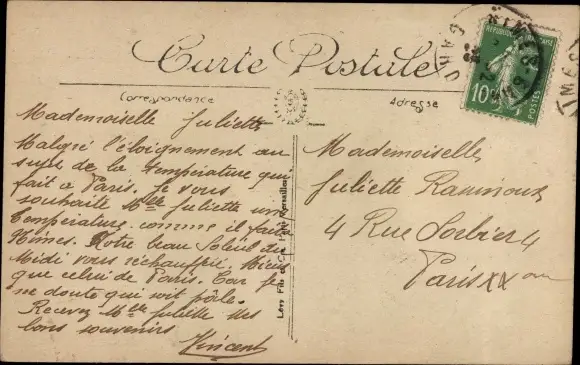 Carte Postale
Correspondance
Adresse
RÉPUBLIQUE FRANÇAISE
10
POSTES
NIMES
GARD
Mademoiselle Juliette
Malgré l'éloignement au
sujet de la température qui
fait a Paris. Je vous
souhaite Melle Juliette une
Température comme il fait a
Nimes. Notre beau Soleil du
Midi vous réchauffrai Mieux
que celui de Paris. Car je
ne doute que soit pâle.
Recevez Melle Juliette mes
bons souvenirs
Vincent
Lévy Fils et Cie
Mademoiselle
Juliette
4 Rue Sorbier 4
Paris XX